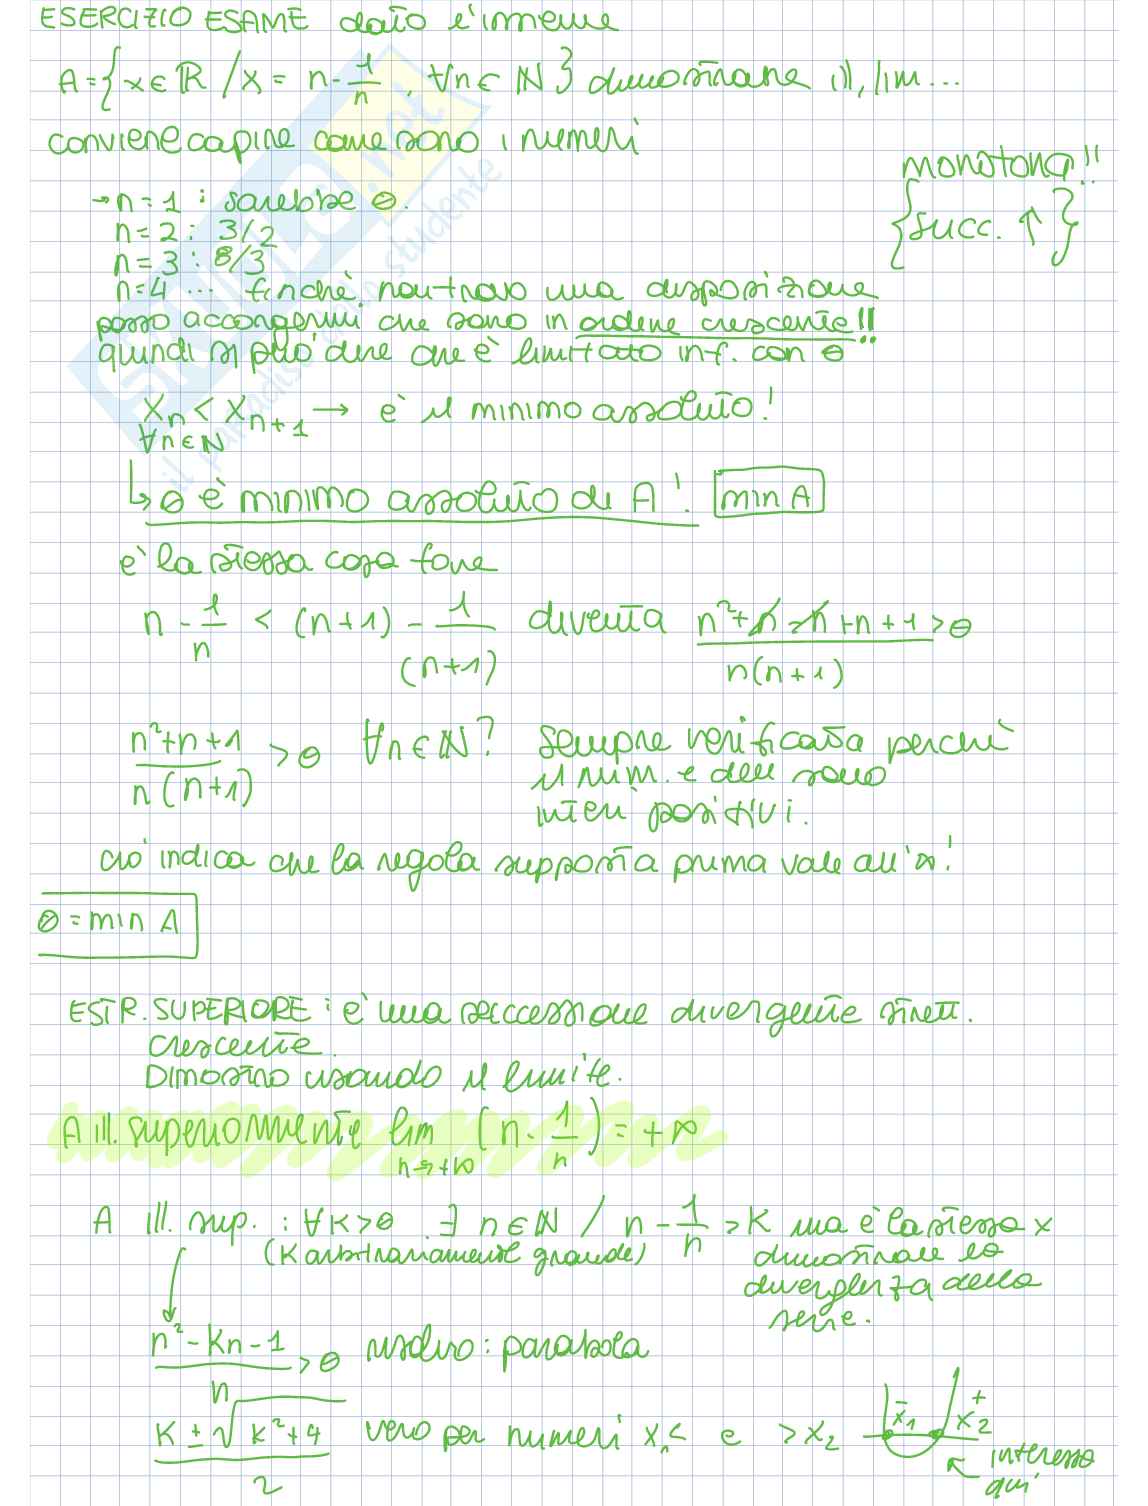 ESERCIZIO ESAME dato l'insieme
A = { x ∈ ℝ / x = n - 1/n, ∀n ∈ ℕ } dimostrare ill, lim...
conviene capire come sono i numeri
monotona!!
{succ. ↑}
→ n = 1 : sarebbe 0.
n = 2 : 3/2
n = 3 : 8/3
n = 4 ... finché non trovo una disposizione
posso accorgermi che sono in ordine crescente!!
quindi si può dire che è limitato inf. con 0
Xn < Xn+1 → è il minimo assoluto!
∀n ∈ N
↳ 0 è minimo assoluto di A! min A
è la stessa cosa fare
n - 1/n < (n+1) - 1/(n+1) diventa n² + n - n + n + 1 / n(n+1) > 0
n² + n + 1 / n(n+1) > 0 ∀n ∈ ℕ? sempre verificata perché
il num. e den sono
interi positivi.
ciò indica che la regola supposta prima vale all'∞!
0 = min A
ESTR. SUPERIORE : è una successione divergente strett.
crescente.
Dimostro usando il limite.
A ill. superiormente lim n→+∞ (n - 1/n) = +∞
A ill. sup. : ∀K>0 ∃ n ∈ ℕ / n - 1/n > K ma è la stessa x
(K arbitrariamente grande) dimostrare la
divergenza della
serie.
n² - Kn - 1 / n > 0 risolvo : parabola
K ± √(K² + 4) / 2 vero per numeri x1 < e > x2
x1 - x2 +
interessa
qui